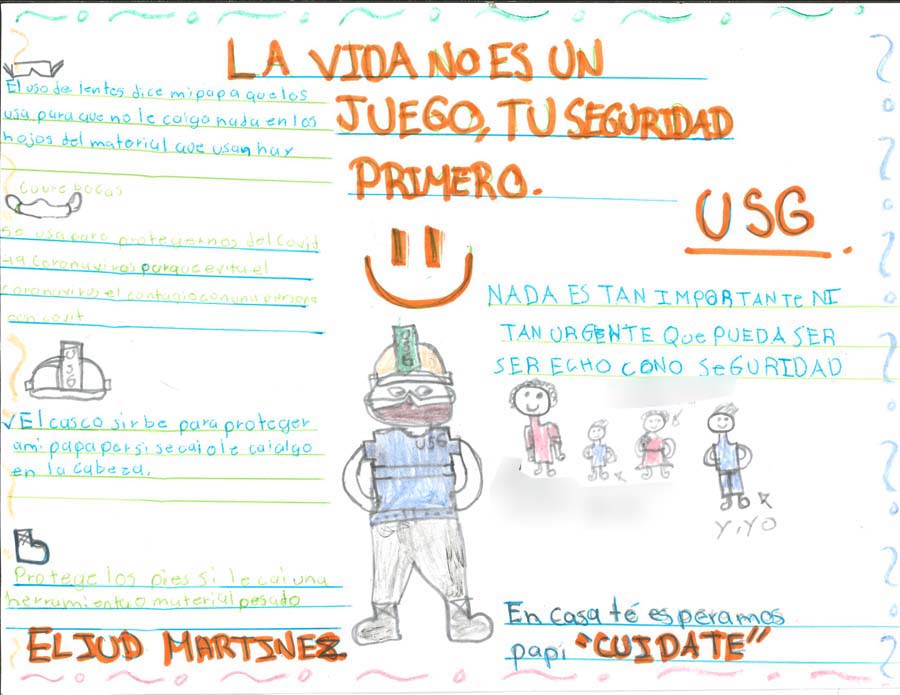 LA VIDA NO ES UN
JUEGO, TU SEGURIDAD
PRIMERO.
USG
El uso de lentes dice mi papa que los
usa para que no le caiga nada en los
hojos del material que usan hay
Cubre bocas
Se usa para protegernos del Covid
19 Coronaviros porque evita el
coronavirus el contagio con una persona
con covit
USG
√El casco sirbe para proteger
ami papa por si se cai o le cai algo
en la cabeza.
Protege los pies si le cai una
herramienta o material pesado
ELIUD MARTINEZ.
USG
USG
NADA ES TAN IMPORTANTE NI
TAN URGENTE QUe PUEDA SER
SER ECHO CONO SeGURIDAD
Y,YO
En casa té esperamos
papi "CUIDATE"